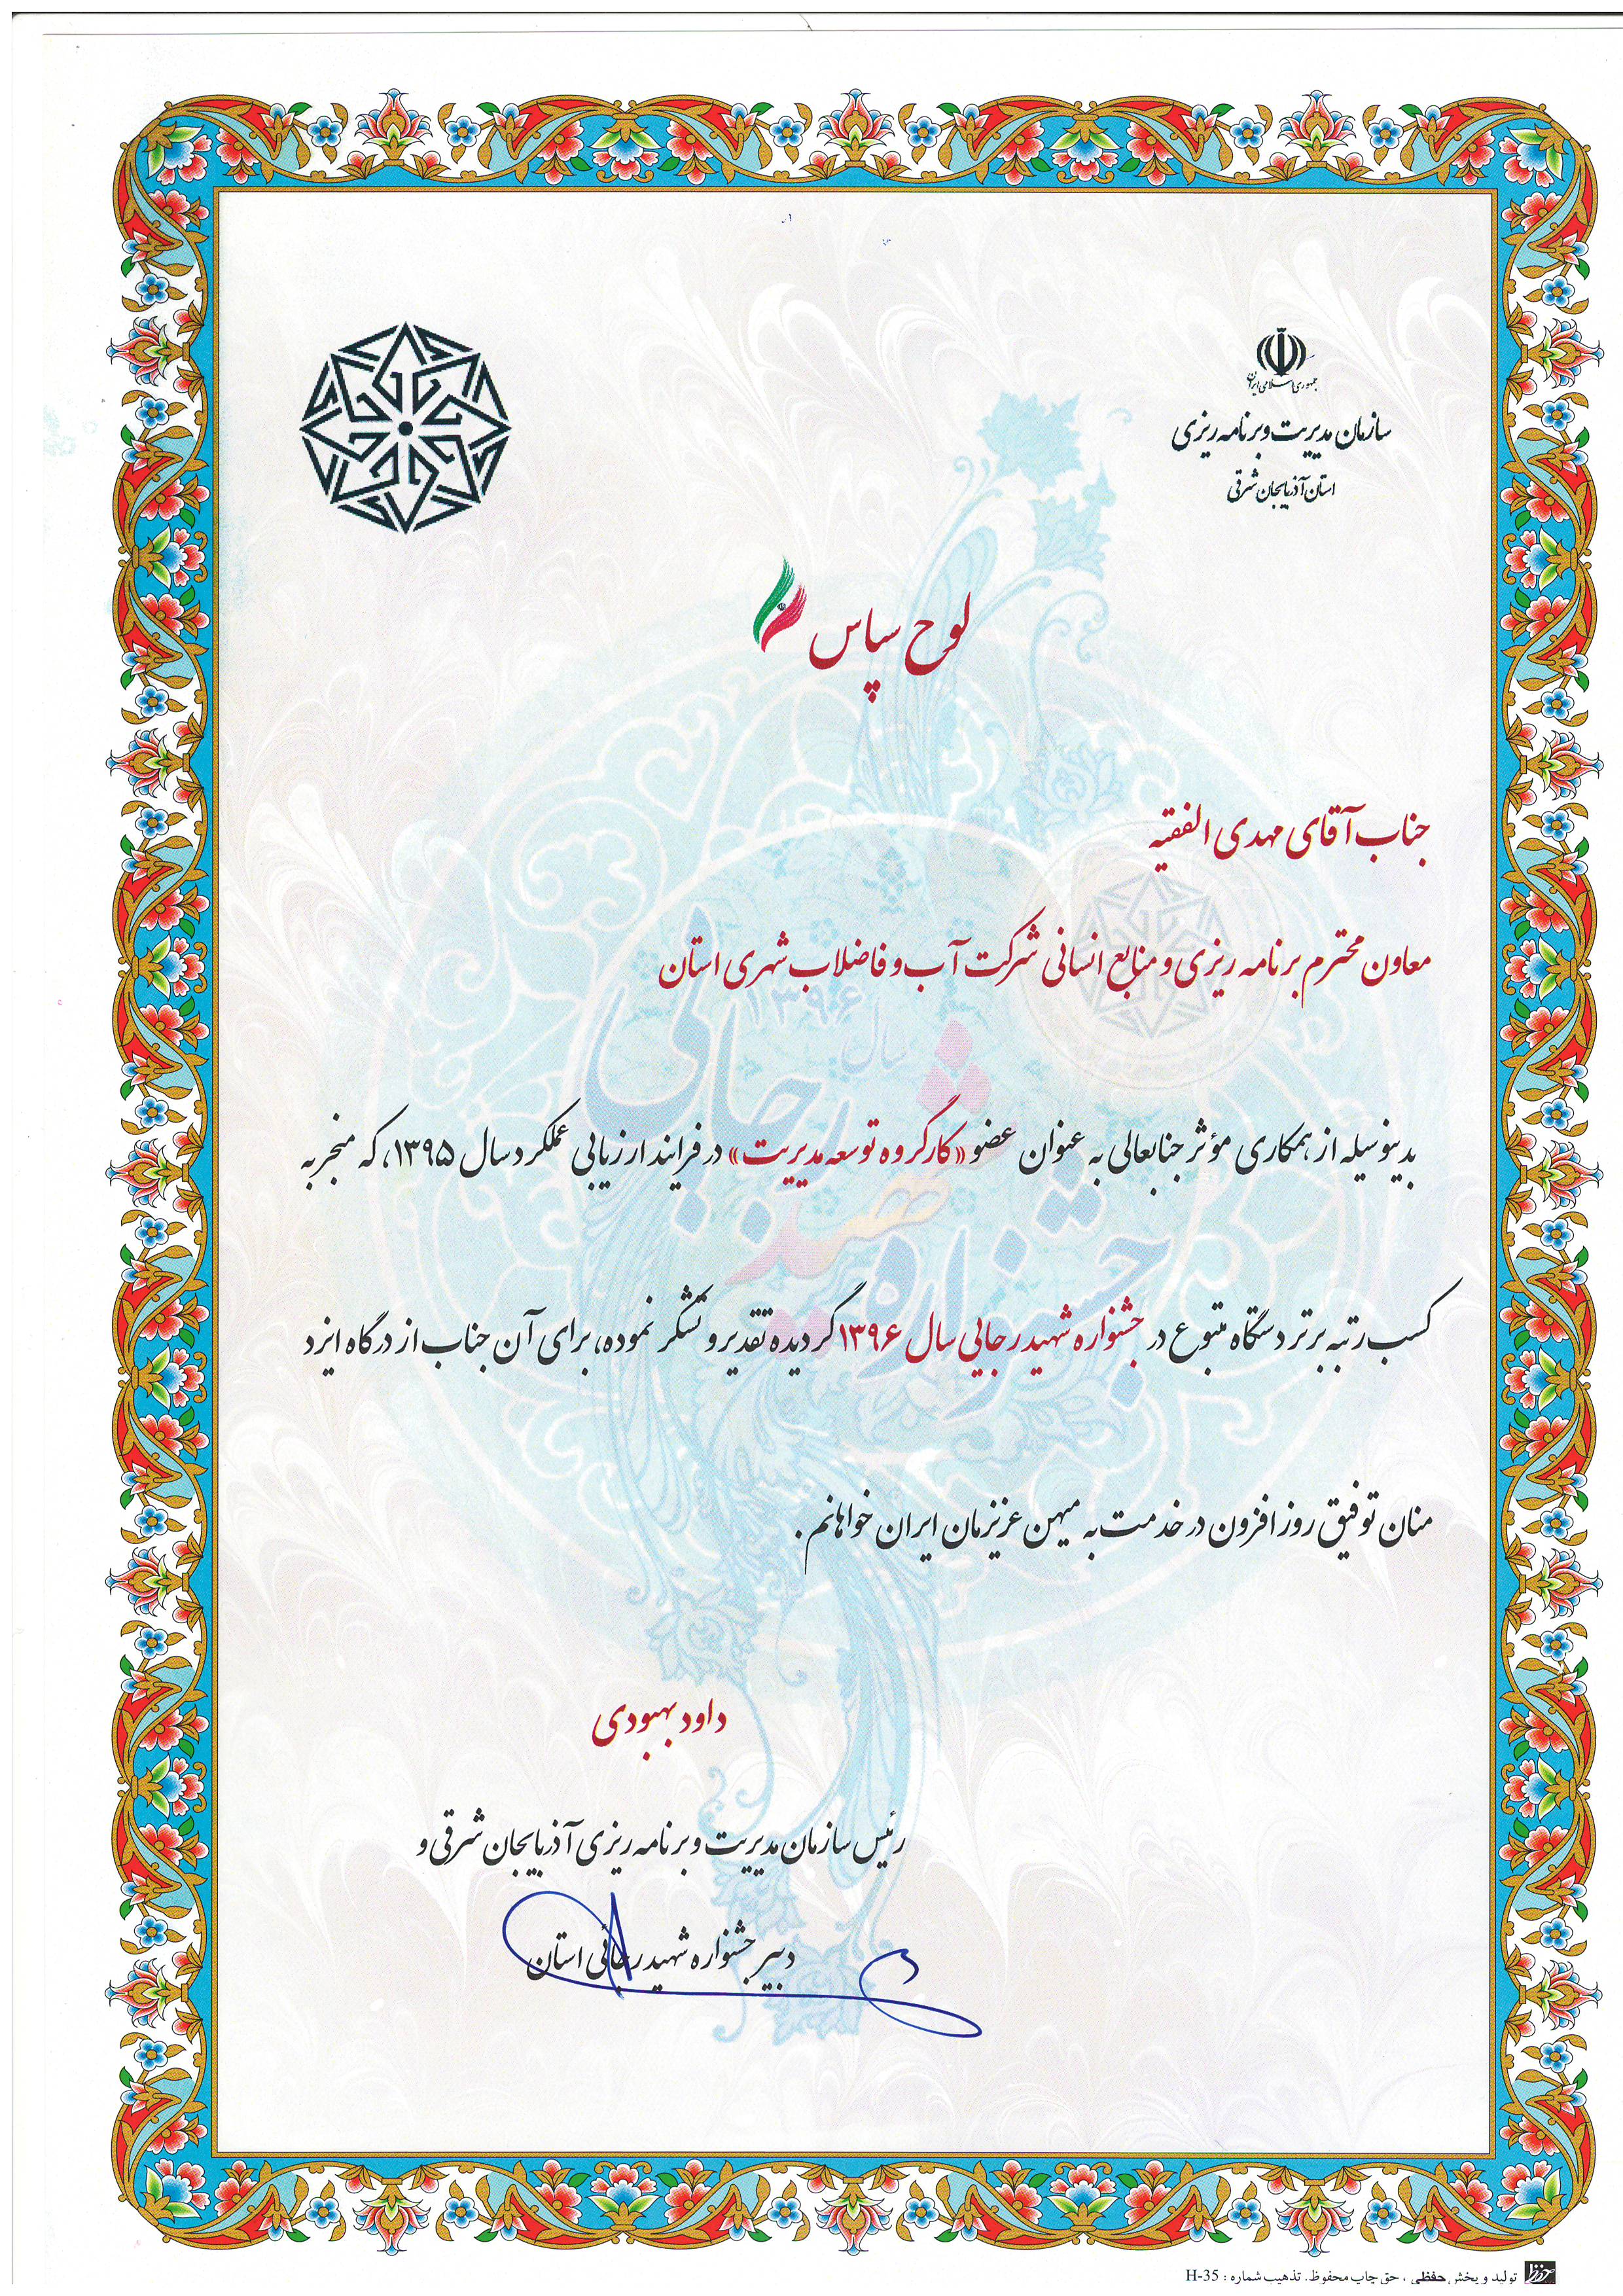 جمهوری اسلامی ایران
سازمان مدیریت و برنامه ریزی
استان آذربایجان شرقی
لوح سپاس
جناب آقای مهدی الفقیه
معاون محترم برنامه ریزی و منابع انسانی شرکت آب و فاضلاب شهری استان
سال ۱۳۹۶
جشنواره شهید رجایی
بدینوسیله از همکاری مؤثر جنابعالی به عنوان عضو «کارگروه توسعه مدیریت» در فرایند ارزیابی عملکرد سال ۱۳۹۵، که منجر به
کسب رتبه برتر دستگاه متبوع در جشنواره شهید رجایی سال ۱۳۹۶ گردیده تقدیر و تشکر نموده، برای آن جناب از درگاه ایزد
منان توفیق روز افزون در خدمت به میهن عزیزمان ایران خواهانم.
داود بهبودی
رئیس سازمان مدیریت و برنامه ریزی آذربایجان شرقی و
دبیر جشنواره شهید رجائی استان
تولید و پخش حفظی، حق چاپ محفوظ. تذهیب شماره: H-35